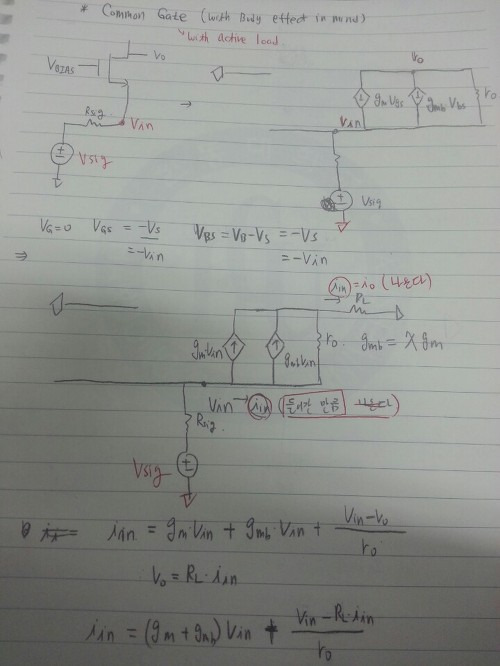 * Common Gate (with Body effect in mind)
with active load
VBIAS
Vo
Rsig
Vin
Vsig
→
Vo
gmVgs
gmbVbs
ro
Vin
Vsig
VG=0 VGS = -Vs VBS = VB-VS = -Vs
= -Vin = -Vin
⇒
iin = io (나온다)
RL
gmVin
gmbVin
ro
gmb = χgm
Vin → iin (들어간 만큼 나온다)
Rsig
Vsig
iin = gm·Vin + gmb·Vin + (Vin-Vo)/ro
Vo = RL·iin
iin = (gm+gmb)Vin + (Vin-RL·iin)/ro